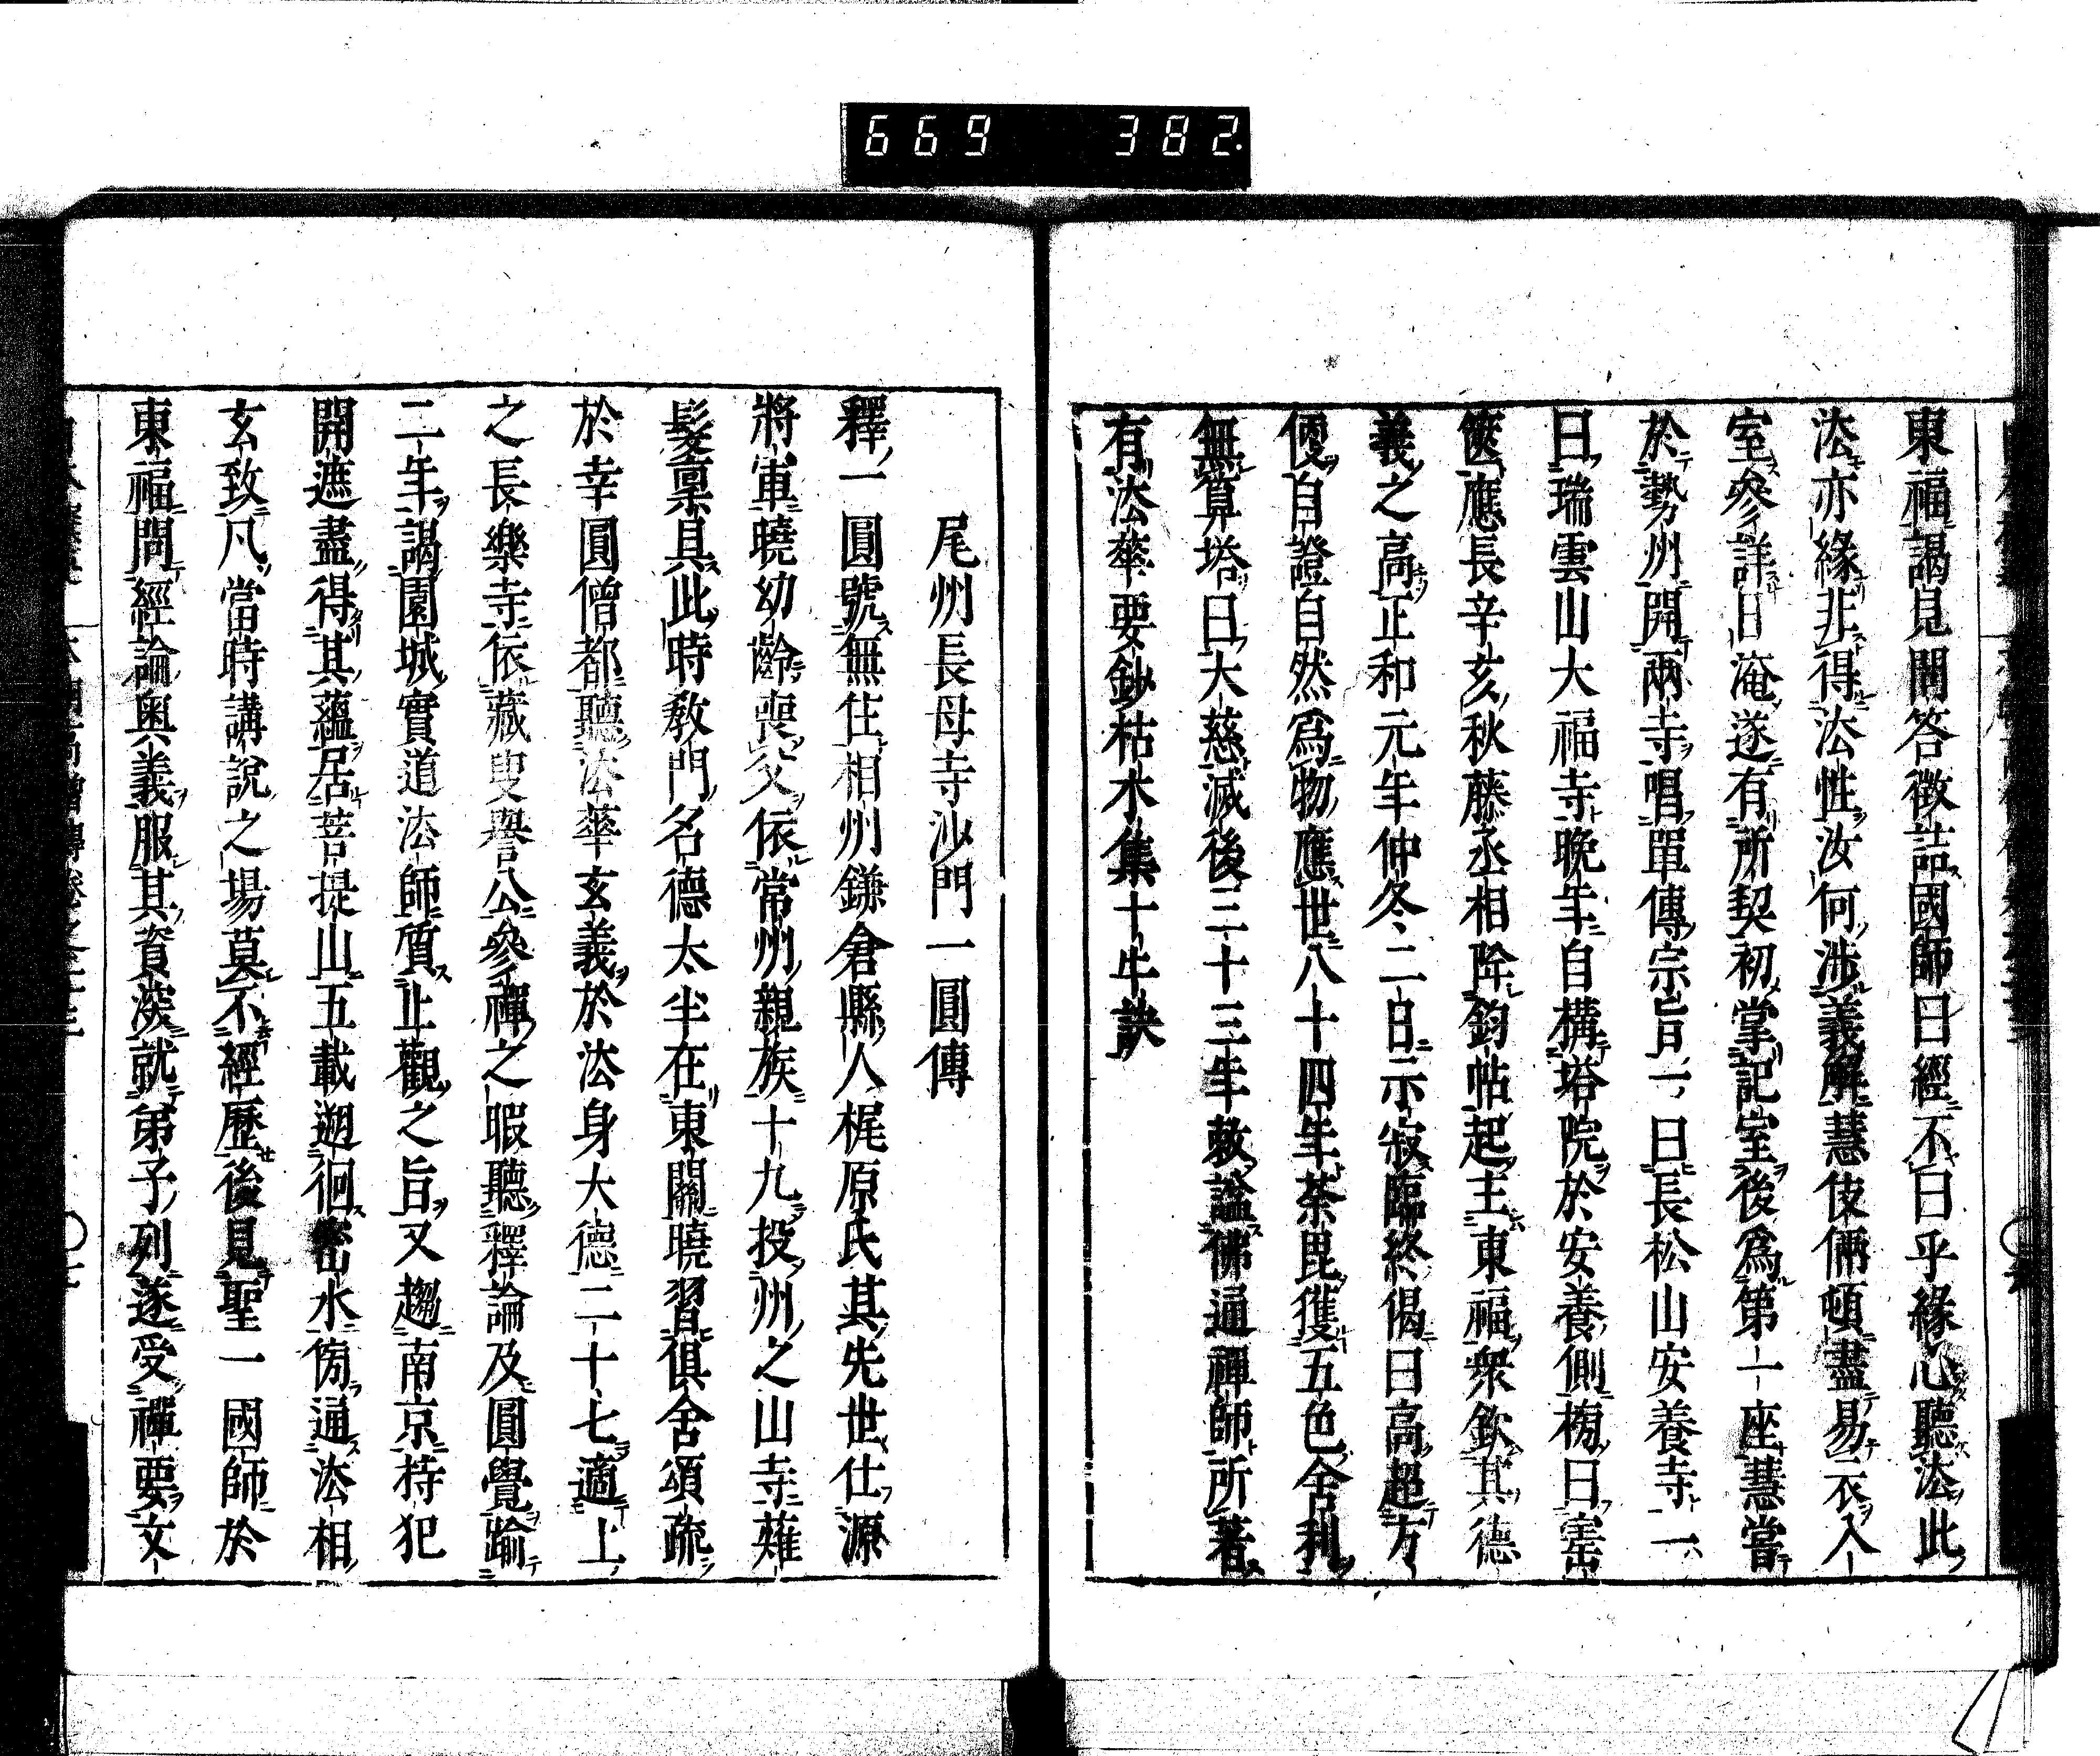 669 382.
東福謁見問答徵詰國師曰經不曰乎緣心聽法此
法亦緣非得法性汝何涉義解慧伎倆頓盡易衣入
室參詳日淹遂有所契初掌記室後爲第一座慧嘗
於勢州開兩寺唱單傳宗旨一曰長松山安養寺一
曰瑞雲山大福寺晚年自構塔院於安養側榜曰
應長辛亥秋藤丞相降鈞帖起主東福衆欽其德
義之高正和元年仲冬二日示寂臨終偈曰高超方
便自證自然爲物應世八十四年荼毘獲五色舍利
無算塔曰大慈滅後三十三年敕謚佛通禪師所著
有法華要鈔枯木集十牛訣
尾州長母寺沙門一圓傳
釋一圓號無住相州鎌倉縣人梶原氏其先世仕源
將軍曉幼齡喪父依常州親族十九投州之山寺薙
髮禀具此時敎門名德太半在東關曉習俱舍頌疏
於幸圓僧都聽法華玄義於法身大德二十七適上
之長樂寺依藏叟譽公參禪之暇聽釋論及圓覺踰
二年謁園城實道法師質止觀之旨又趨南京持犯
開遮盡得其蘊居菩提山五載遡徊密水傍通法相
玄致凡當時講說之場莫不經歷後見聖一國師於
東福問經論奥義服其資葢就弟子列遂受禪要文